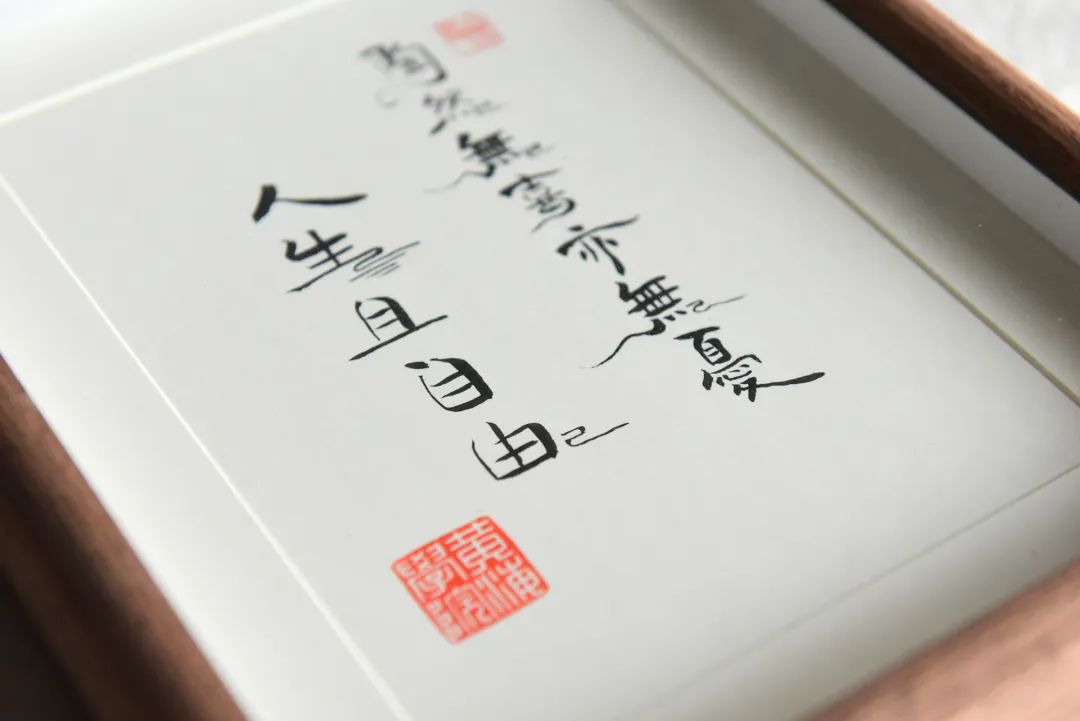 陶然無喜亦無憂
人生且自由